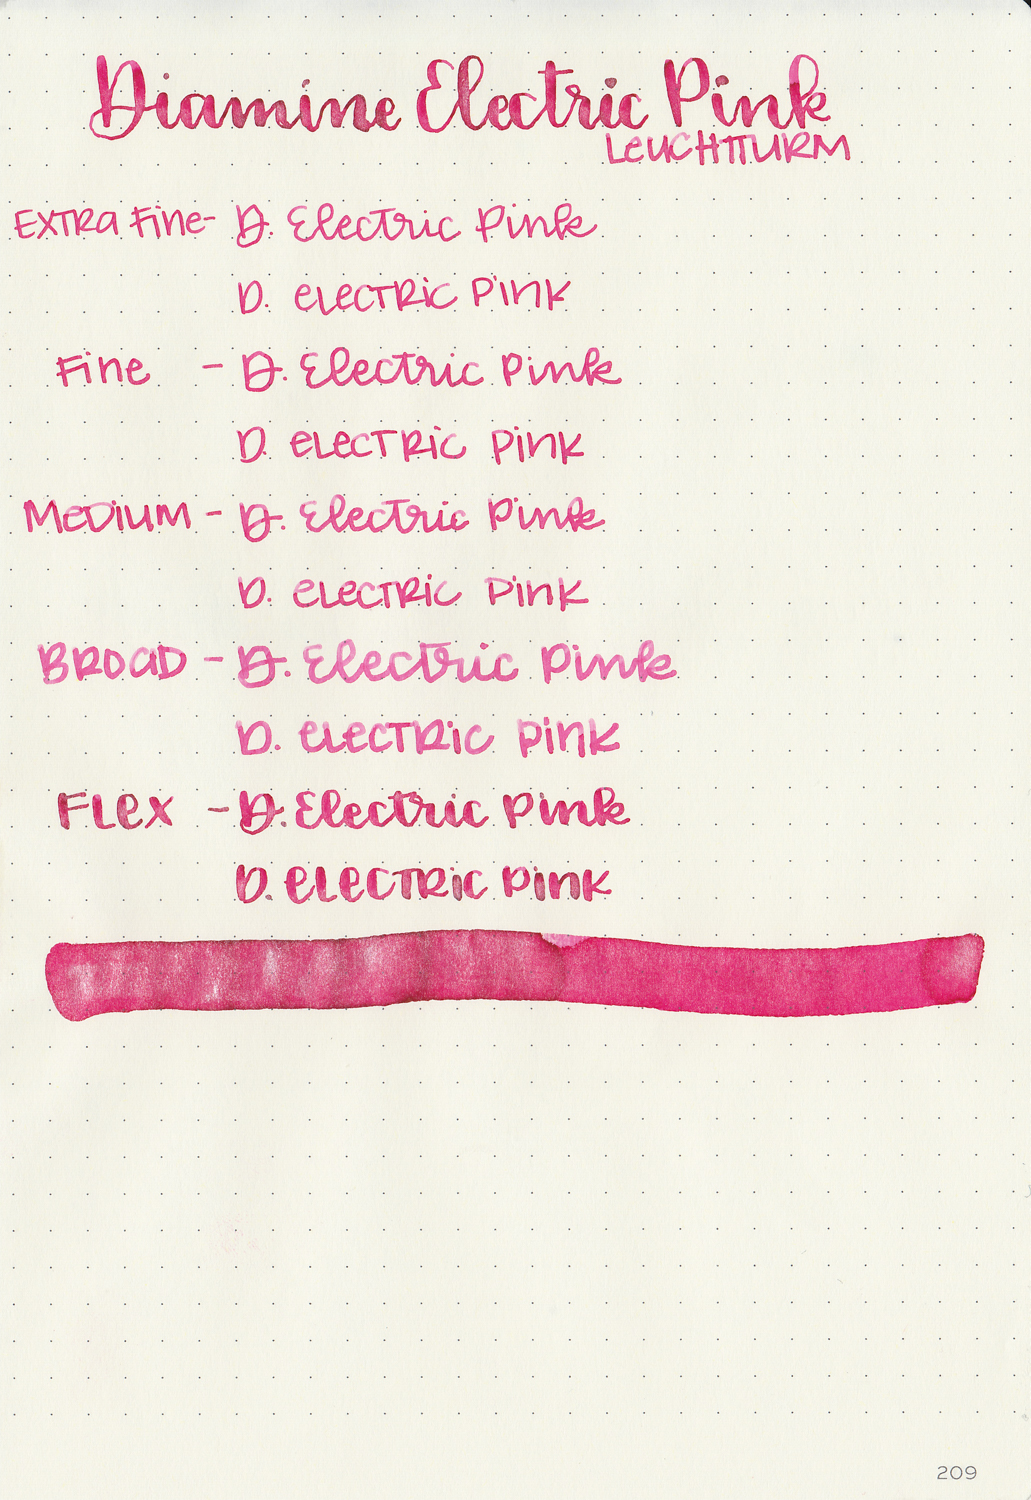 Diamine Electric Pink
LEUCHTTURM
EXTRA Fine - D. Electric Pink
D. eLeCTRic Pink
Fine - D. Electric Pink
D. eLeCTRic Pink
MeDiUM - D. Electric Pink
D. eLeCTRic Pink
BROAD - D. Electric Pink
D. eLeCTRic Pink
FLex - D. Electric Pink
D. eLeCTRic Pink
209